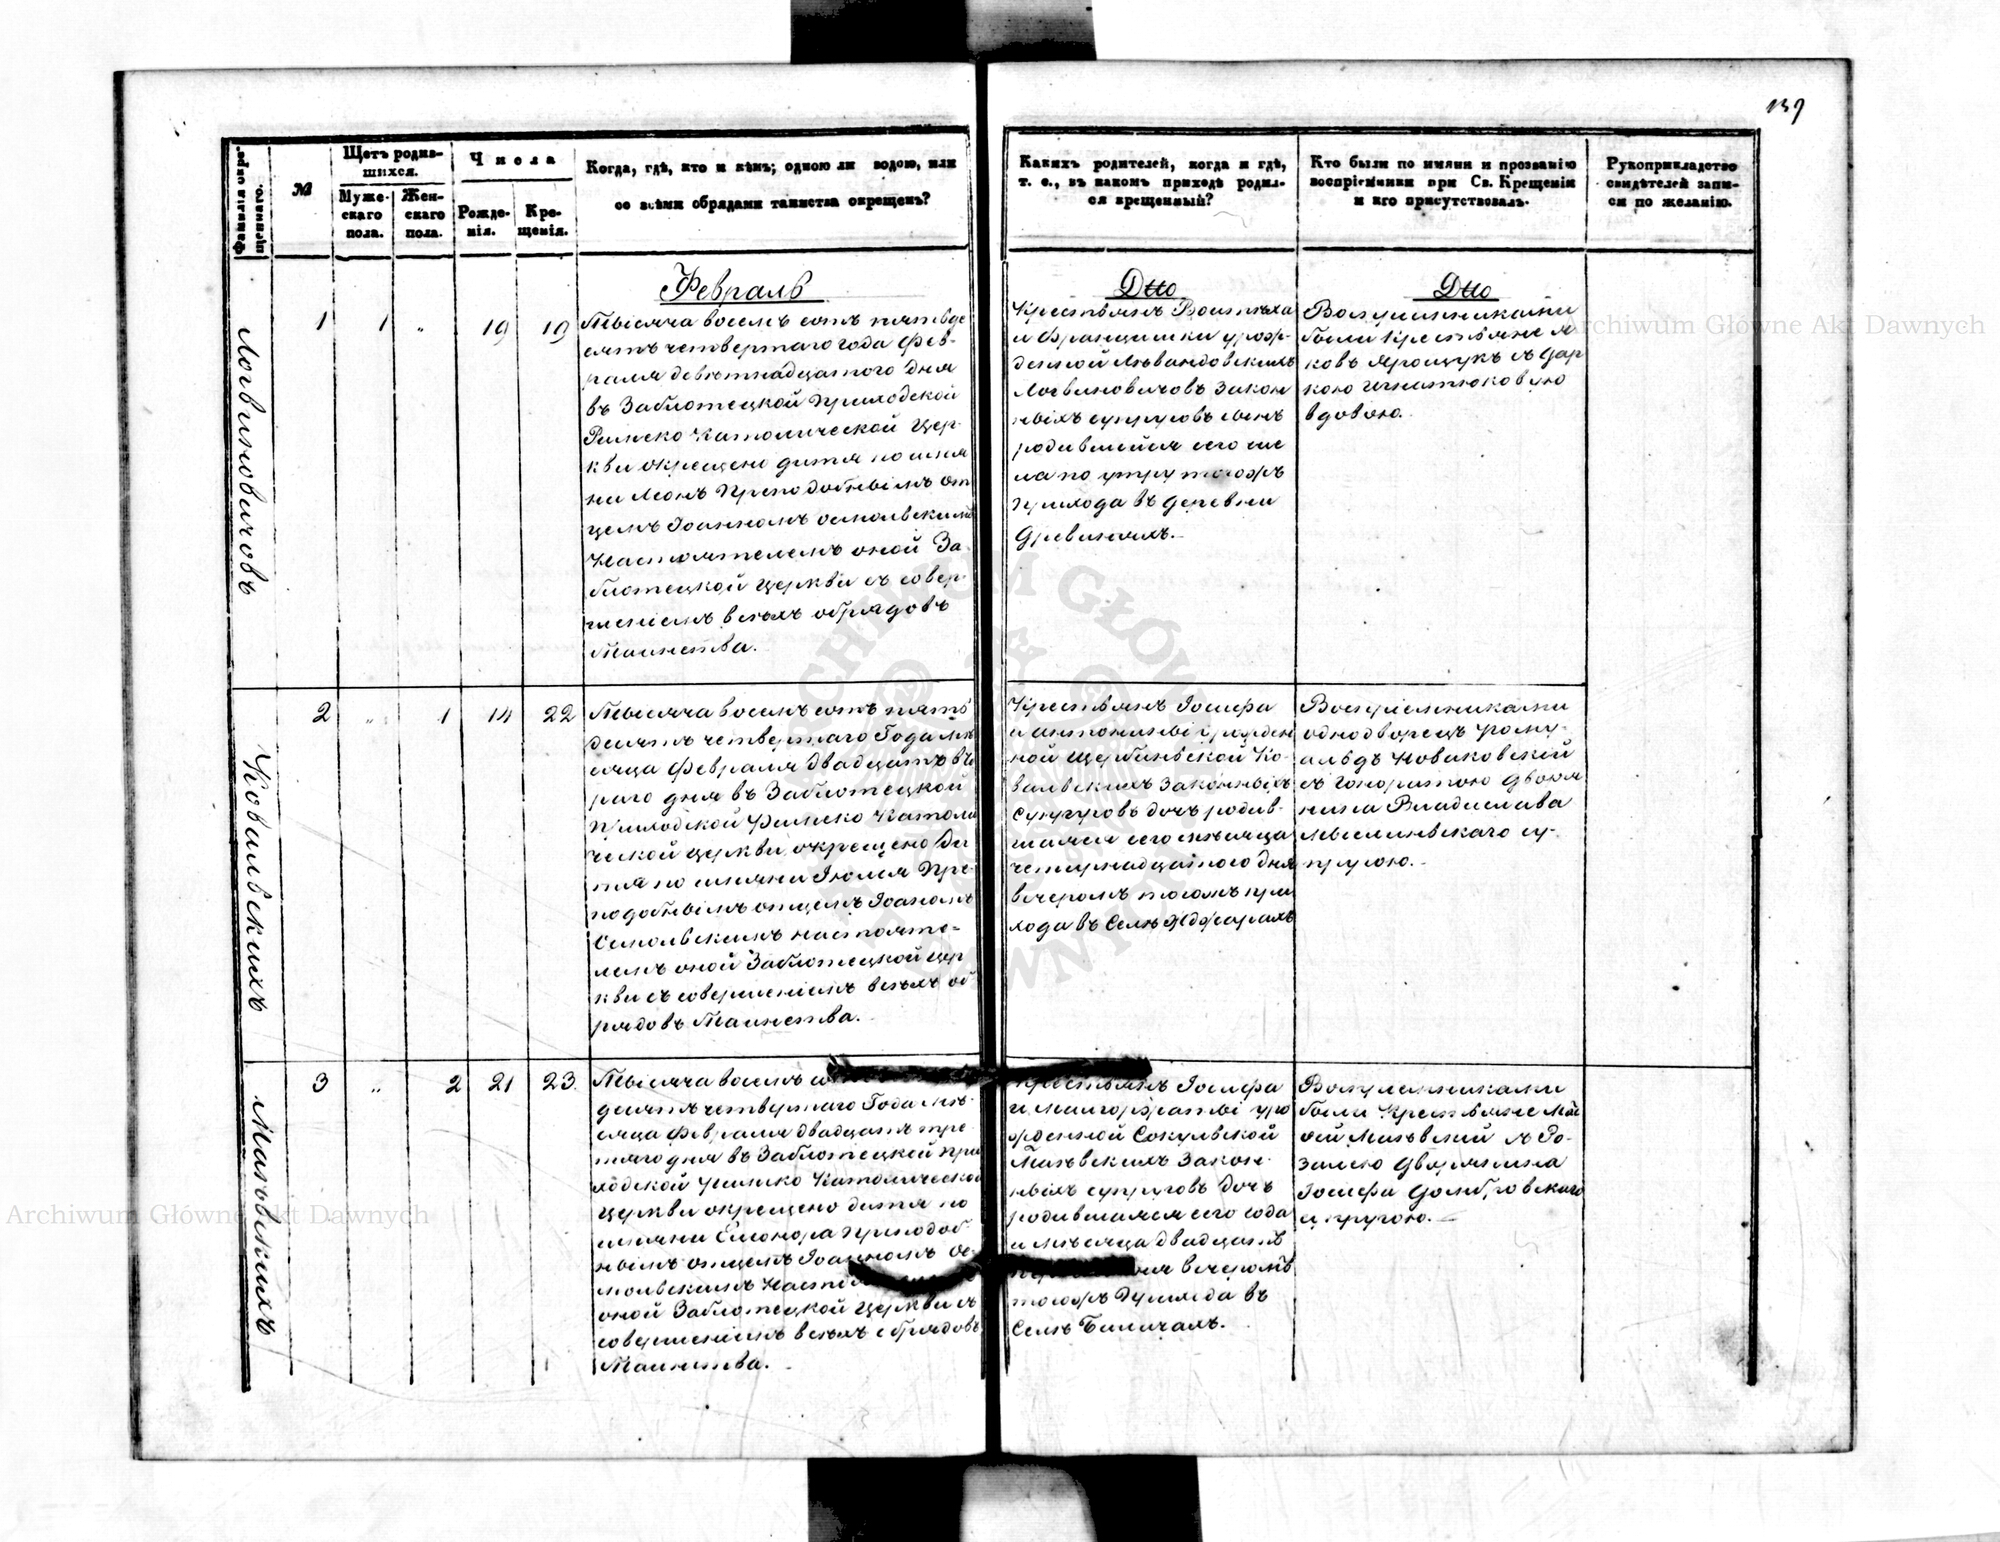 139
Фамилія окре-
щеннаго.
№
Щетъ родив-
шихся.
Муже-
скаго
пола.
Жен-
скаго
пола.
Числа
Рожде-
нія.
Кре-
щенія.
Когда, гдѣ, кто и кѣмъ; одною ли водою, или
со всѣми обрядами таинства окрещенъ?
Какихъ родителей, когда и гдѣ,
т. е., въ какомъ приходѣ родил-
ся крещенный?
Кто были по имяни и прозванію
воспріемники при Св. Крещеніи
и кто присутствовалъ.
Рукоприкладство
свидѣтелей запи-
си по желанію.
Февраль
Dtto
Dtto
Логвиновичовъ
1 1 „ 19 19
Тысяча восемъ сотъ пятьде
сятъ четвертаго года Фев-
раля девятнадцатого дня
въ Заблотецкой Приходской
Римско Католической Цер-
кви окрещено дитя по имя
ни Леонъ Преподобнымъ От
цемъ Іоанномъ Осмольскимъ
Настоятелемъ оной За-
блотецкой Церкви съ совер-
шеніемъ всѣхъ обрядовъ
Таинства.
Крестьянъ Войтѣха
и Францишки урож-
денной Левандовскихъ
Логвиновичовъ Закон
ныхъ супруговъ сынъ
родившійся сего чис
ла по утру тогожъ
прихода въ деревни
Древиняхъ.
Воспріемниками
были Крестьяне Я
ковъ Ярощукъ съ Дар
кою Игнатюковою
вдовою.
Ковальскихъ
2 „ 1 14 22
Тысяча восемъ сотъ пять
десятъ четвертаго Года мѣ
сяца Февраля двадцать вто
раго дня въ Заблотецкой
Приходской Римско Католи
ческой церкви окрещено Ди
тя по имяни Іюлія Пре-
подобнымъ отцемъ Іоаномъ
Осмольскимъ настояте-
лемъ оной Заблотецкой цер
кви съ совершеніемъ всѣхъ об
рядовъ Таинства.
Крестьянъ Іосифа
и Антонины урожден
ной Щербинской Ко-
вальскихъ законныхъ
Супруговъ дочь родив-
шаяся сего мѣсяца
четырнадцатого дня
вечеромъ тогожъ при
хода въ Селѣ
Воспріемниками
однодворецъ Рому-
альдъ Новаковскій
съ Гоноратою Дворя
нина Владислава
су-
пругою.
Мазѣвскихъ
3 „ 2 21 23
Тысяча восемъ
десятъ четвертаго Года мѣ-
сяца Февраля двадцать тре-
тяго дня въ Заблотецкой При
ходской Римско Католической
Церкви окрещено дитя по
имяни Елеонора Преподоб
нымъ отцемъ Іоанномъ Ос-
мольскимъ
оной Заблотецкой Церкви съ
совершеніемъ всѣхъ обрядовъ
Таинства.
Крестьянъ Іосифа
и Маргораты уро
жденной Сокульской
Мазѣвскихъ Закон-
ныхъ супруговъ дочь
родившаяся сего года
и мѣсяца двадцать
вечеромъ
тогожъ Прихода въ
Селѣ Биличахъ.
Воспріемниками
были Крестьяне
Мазѣвскій съ Ро-
залею Дворянина
Іосифа Домбровского
супругою.
Archiwum Główne Akt Dawnych
Archiwum Główne Akt Dawnych